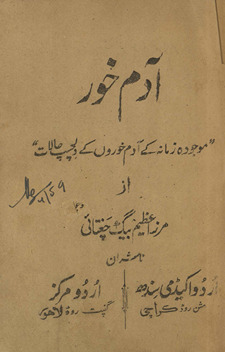 آدم خور
"موجودہ زمانہ کے آدم خوروں کے دلچسپ حالات"
از
مرزا عظیم بیگ چغتائی
ناشران
اردو اکیڈمی سندھ
مشن روڈ کراچی
اردو مرکز
گنپت روڈ لاہور